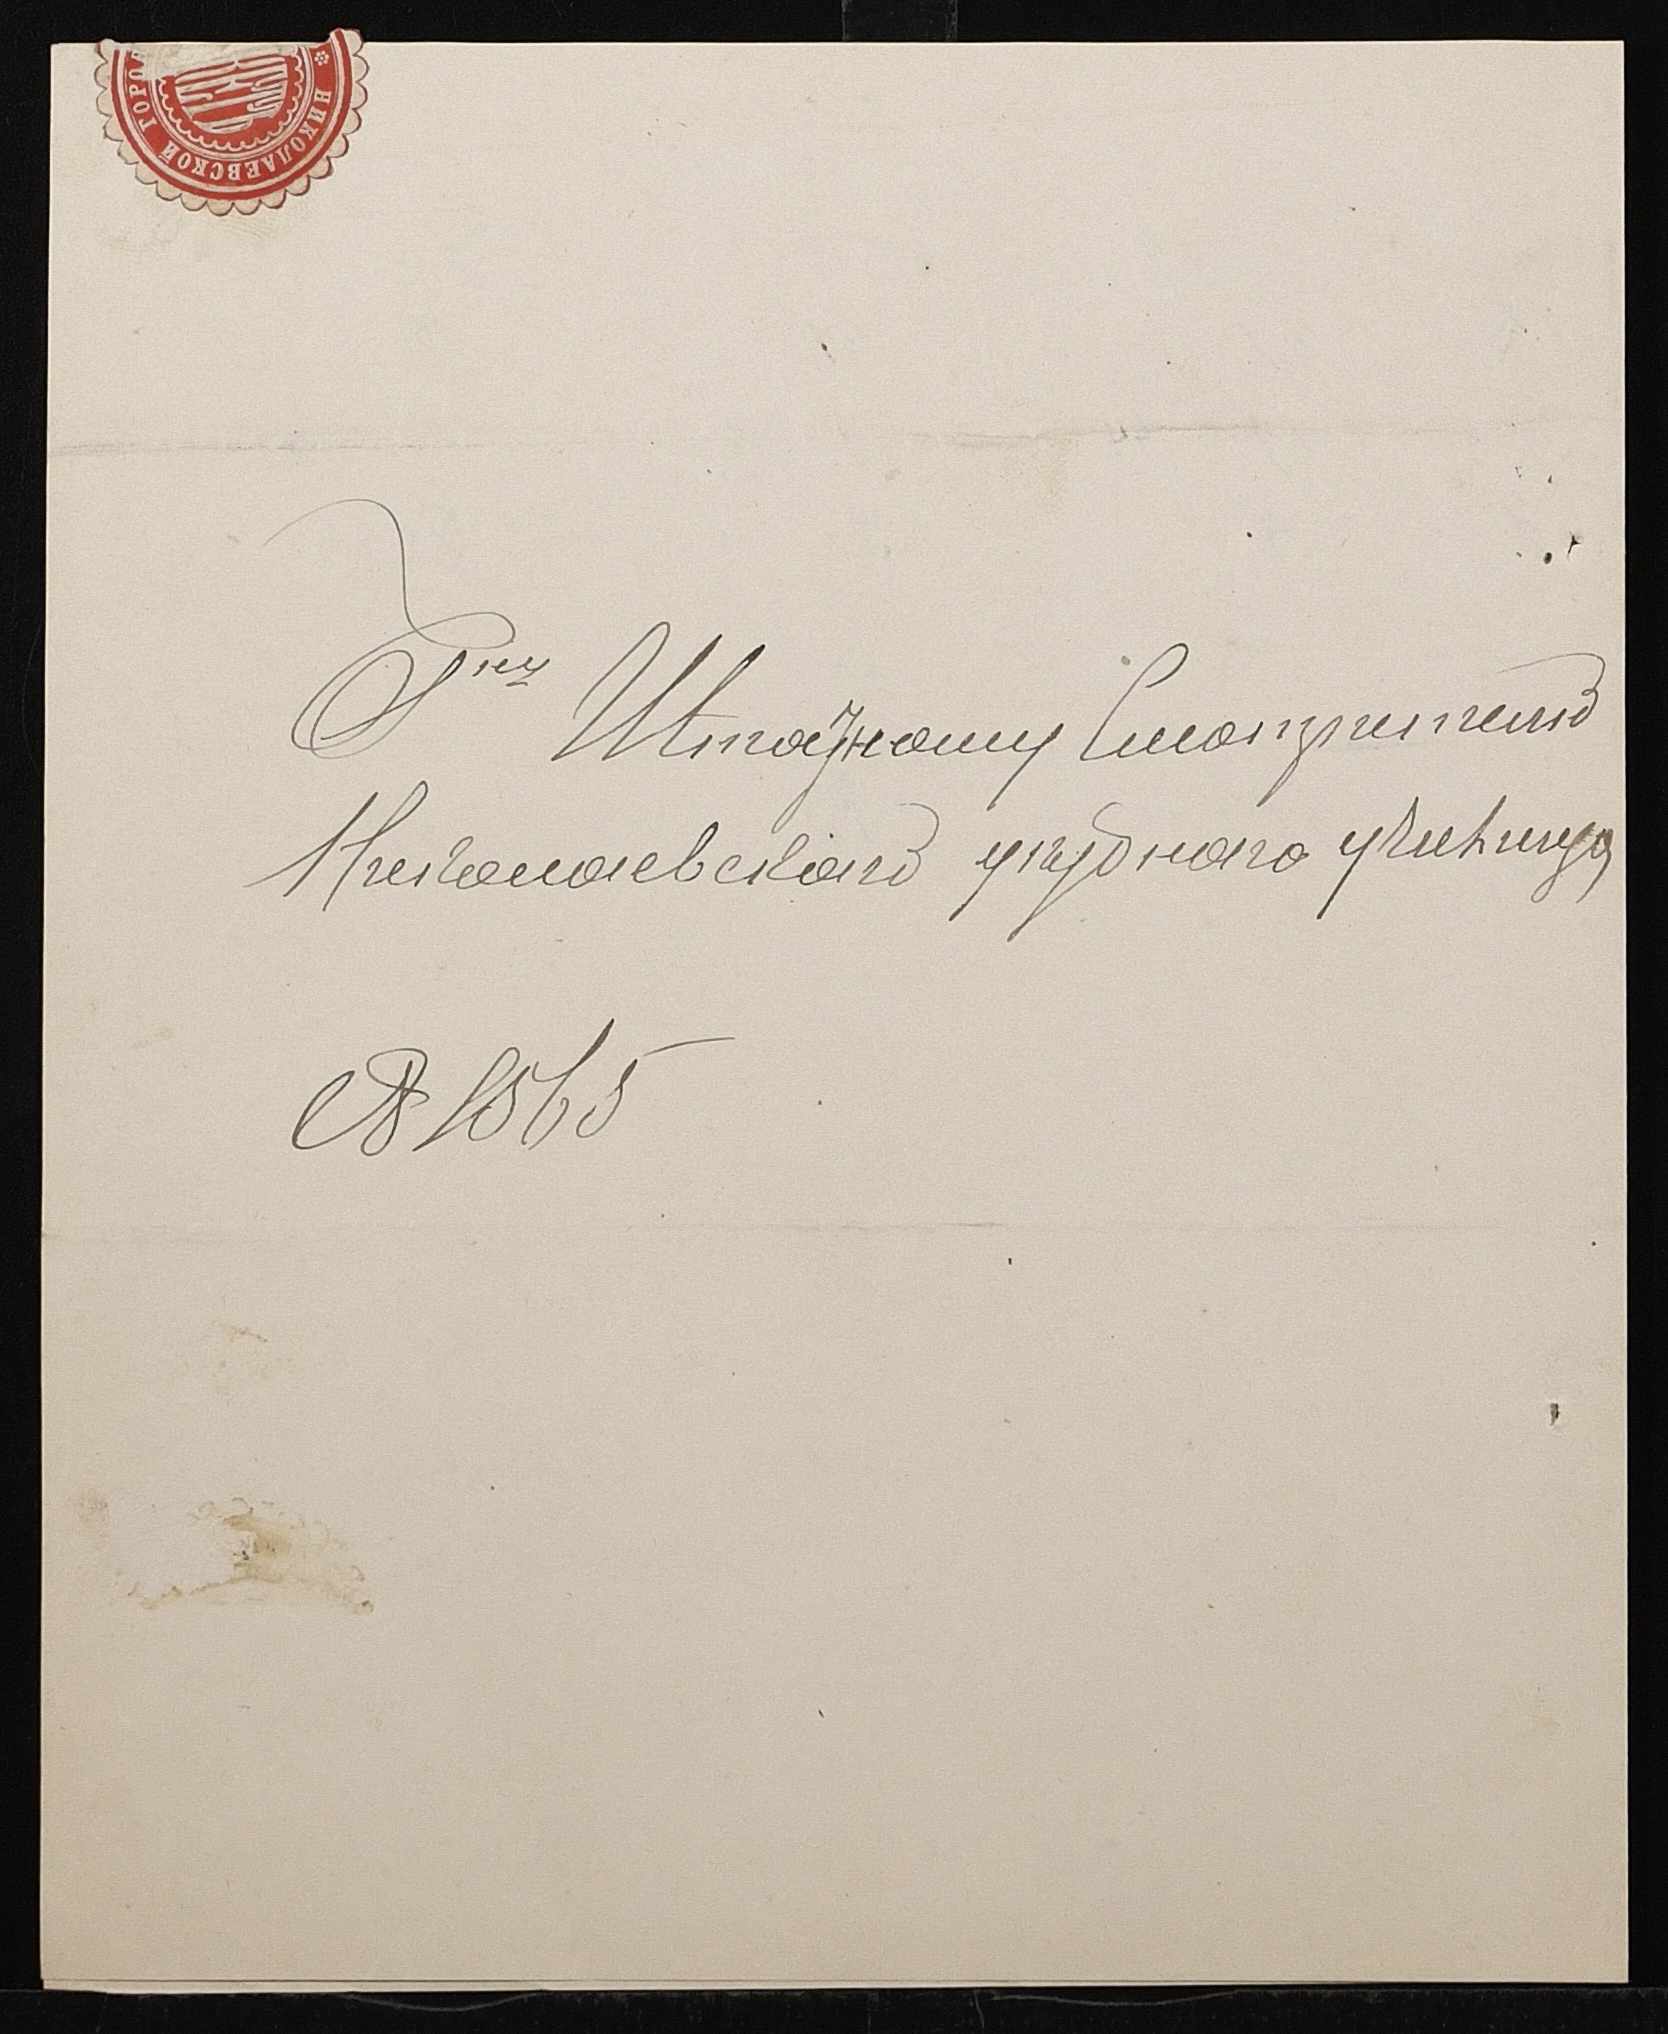 НИКОЛАЕВСКОЙ ГОРО
Гну Штатному Смотрителю
Николаевскаго уѣзднаго училища
№ 1565